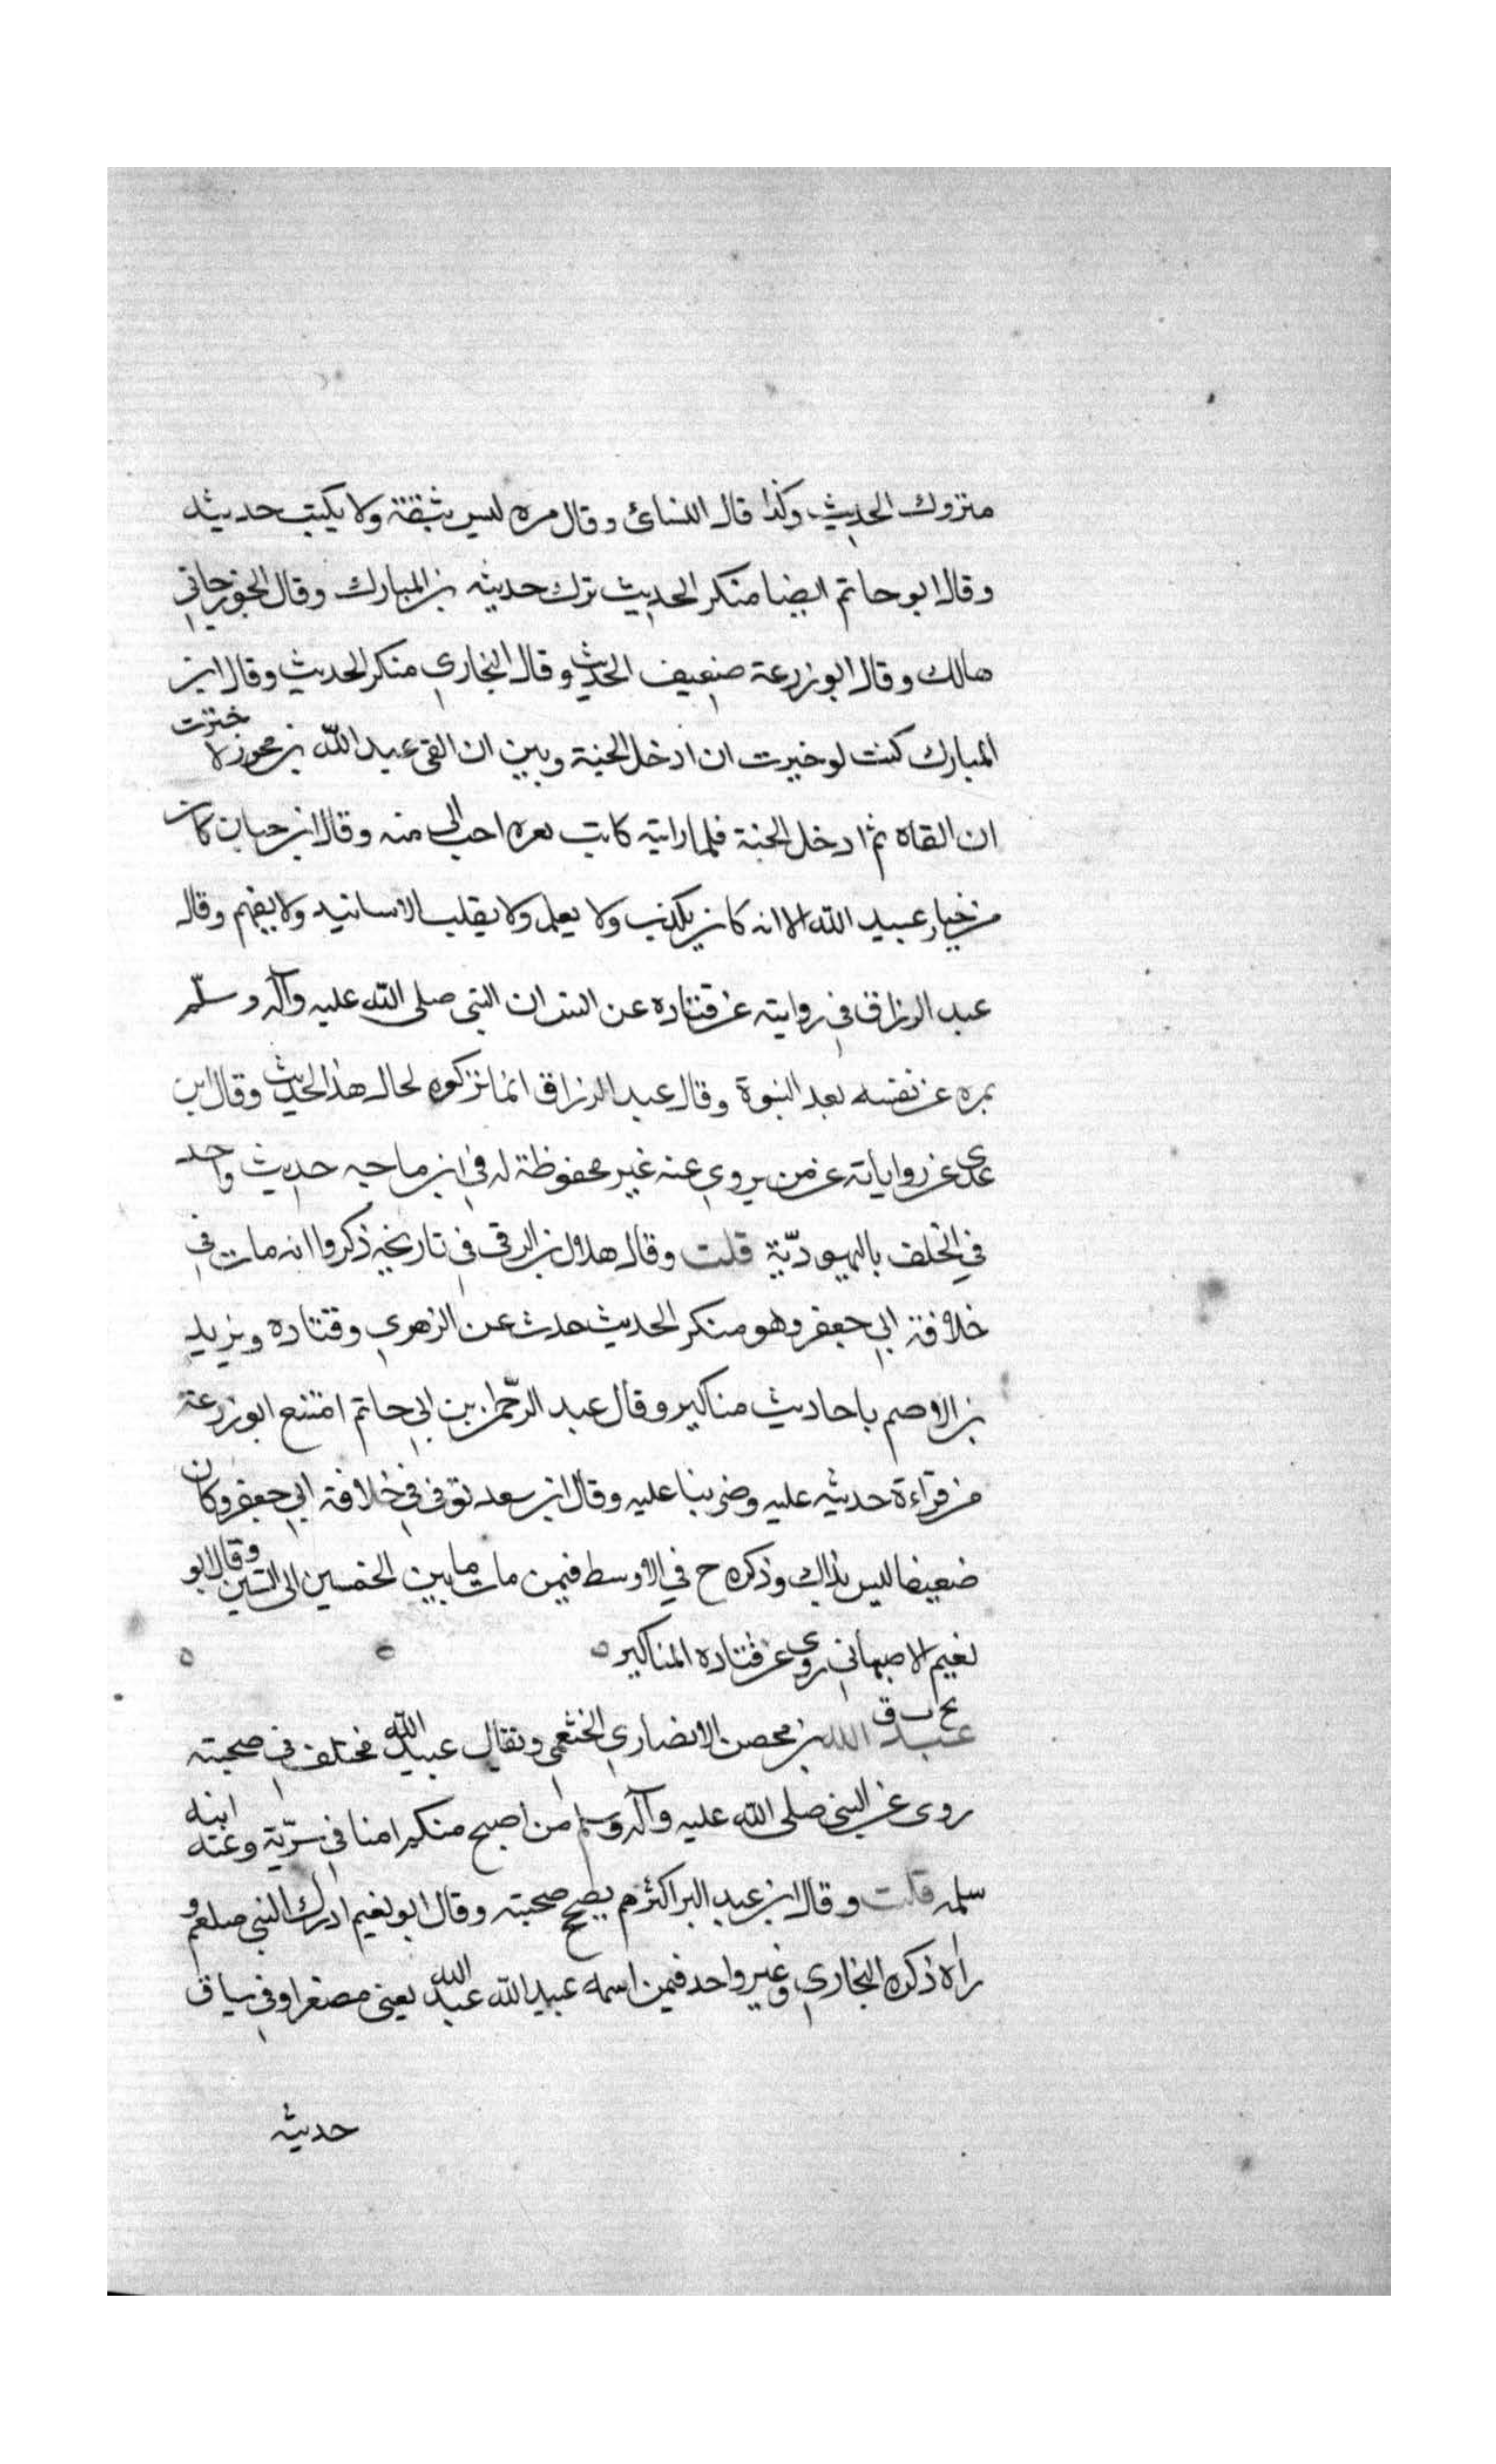 متروك الحديث وكذا قال النسائ وقال مره ليس بثقة ولا يكتب حديثه
وقال ابو حاتم ايضا منكر الحديث ترك حديثه بن المبارك وقال الجوزجاني
هالك وقال ابو زرعة ضعيف الحديث وقال البخاري منكر الحديث وقال ابن
المبارك كنت لو خيرت ان ادخل الجنة وبين ان القى عبد الله بن محرز لاخترت
ان القاه ثم ادخل الجنة فلما رايته كانت بعره احب الى منه وقال ابن حبان كان
من خيار عبيد الله الا انه كان يكذب ولا يعلم ولا يقلب الاسانيد ولا يفهم وقال
عبد الرزاق في روايته عن قتاده عن انس ان النبي صلى الله عليه وآله وسلّم
بمره عن نفسه بعد النبوة وقال عبد الرزاق انما تركوه لحال هذا الحديث وقال ابن
عدى عن رواياته عن من يروي عنه غير محفوظة له في ابن ماجه حديث واحد
في الخلف باليهوديّة قلت وقال هلال بن الرقى في تاريخه ذكروا انه مات في
خلافة ابي جعفر وهو منكر الحديث حدث عن الزهري وقتاده ويزيد
بن الاصم باحاديث مناكير وقال عبد الرحمن بن ابي حاتم امتنع ابو زرعة
من قراءة حديثه عليه وضربنا عليه وقال ابن سعد توفى في خلافة ابي جعفر وكان
ضعيفا ليس بذاك وذكره ح في الاوسط فيمن مات ما بين الخمسين الى الستين وقال ابو
نعيم الاصبهاني روى عن قتاده المناكير ٥ ٥ ٥
بخ ت ق
عبد الله بن محصن الانصاري الخثعمى ويقال عبيد الله مختلف في صحبته
روى عن النبي صلى الله عليه وآله وسلم من اصبح منكم امنا في سرّبة وعنه ابنه
سلمه قلت وقال ابن عبد البر اكثرهم يصحح صحبته وقال ابو نعيم ادرك النبي صلعم و
راه ذكره البخاري وغير واحد فيمن اسمه عبيد الله عبد الله يعنى مصغرا وفي سياق
حديثه